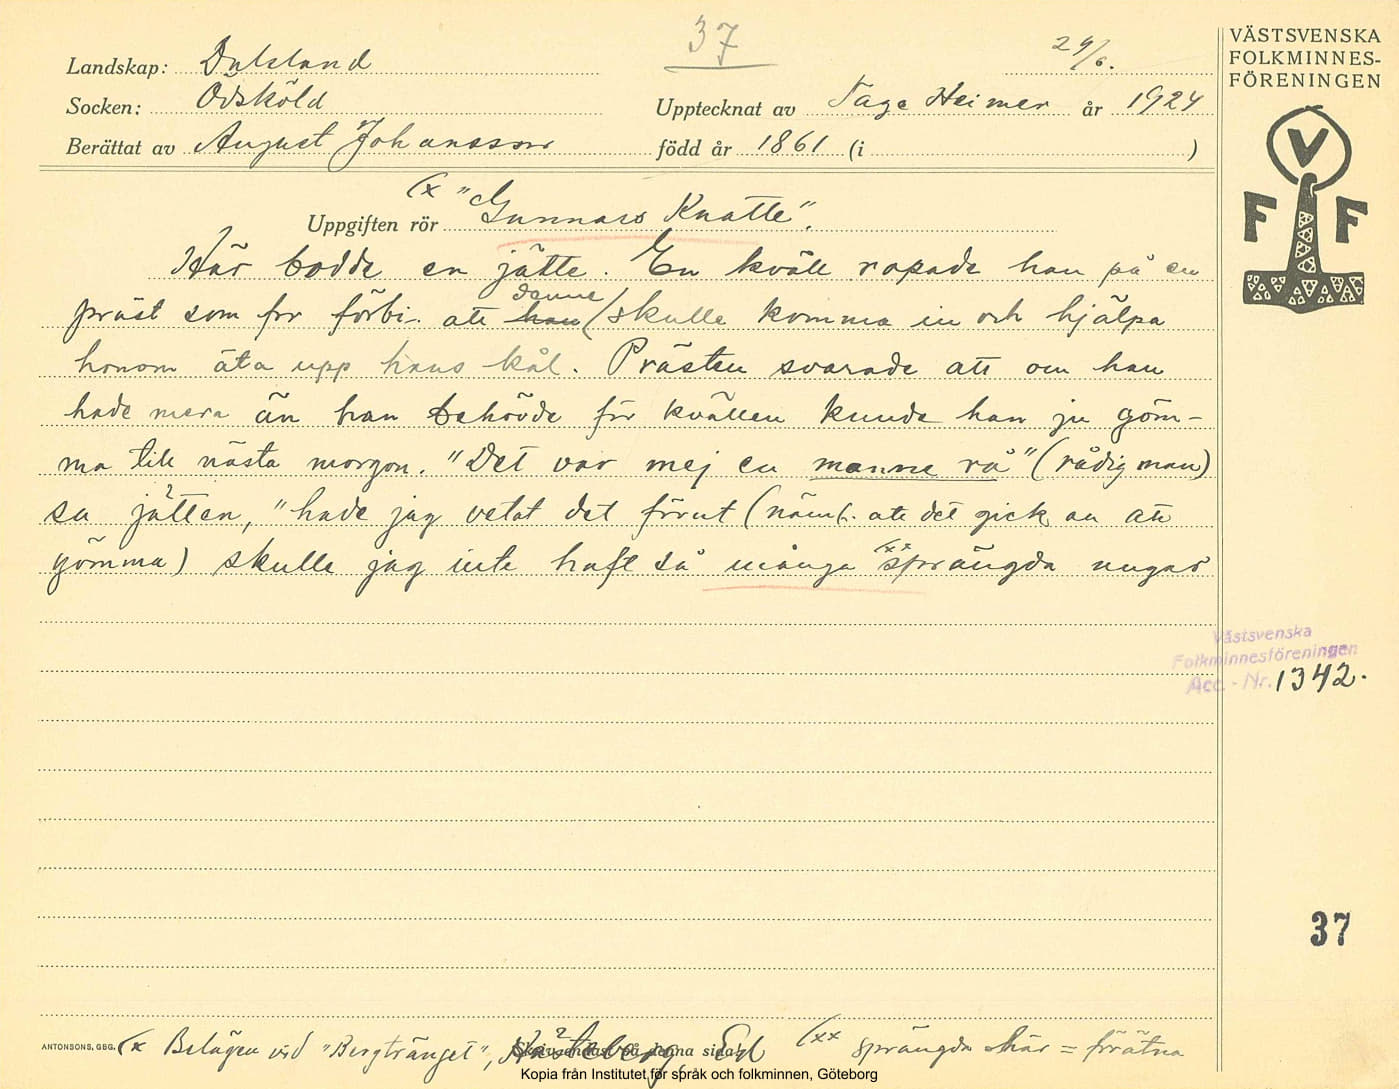 37
29/6.
VÄSTSVENSKA
FOLKMINNES-
FÖRENINGEN
Landskap: Dalsland
Socken: Ödsköld
Upptecknat av Tage Heimer år 1924
Berättat av August Johansson
född år 1861 (i )
V
F F
(x "Gunnars Knatte".
Uppgiften rör
Här bodde en jätte. En kväll ropade han på en
präst som for förbi att han denne skulle komma in och hjälpa
honom äta upp hans kål. Prästen svarade att om han
hade mera än han behövde för kvällen kunde han ju göm-
ma till nästa morgon. "Det var mej en manne rå" (rådig man)
sa jätten, "hade jag vetat det förut (näml. att det gick an att
gömma) skulle jag inte haft så många (xx sprängda ungar
Västsvenska
Folkminnesföreningen
Acc. - Nr. 1342.
37
ANTONSONS, GBG.
(x Belägen vid "Bergtränget", Ed
Skriv endast på denna sida!
(xx sprängda här = förätna
Kopia från Institutet för språk och folkminnen, Göteborg